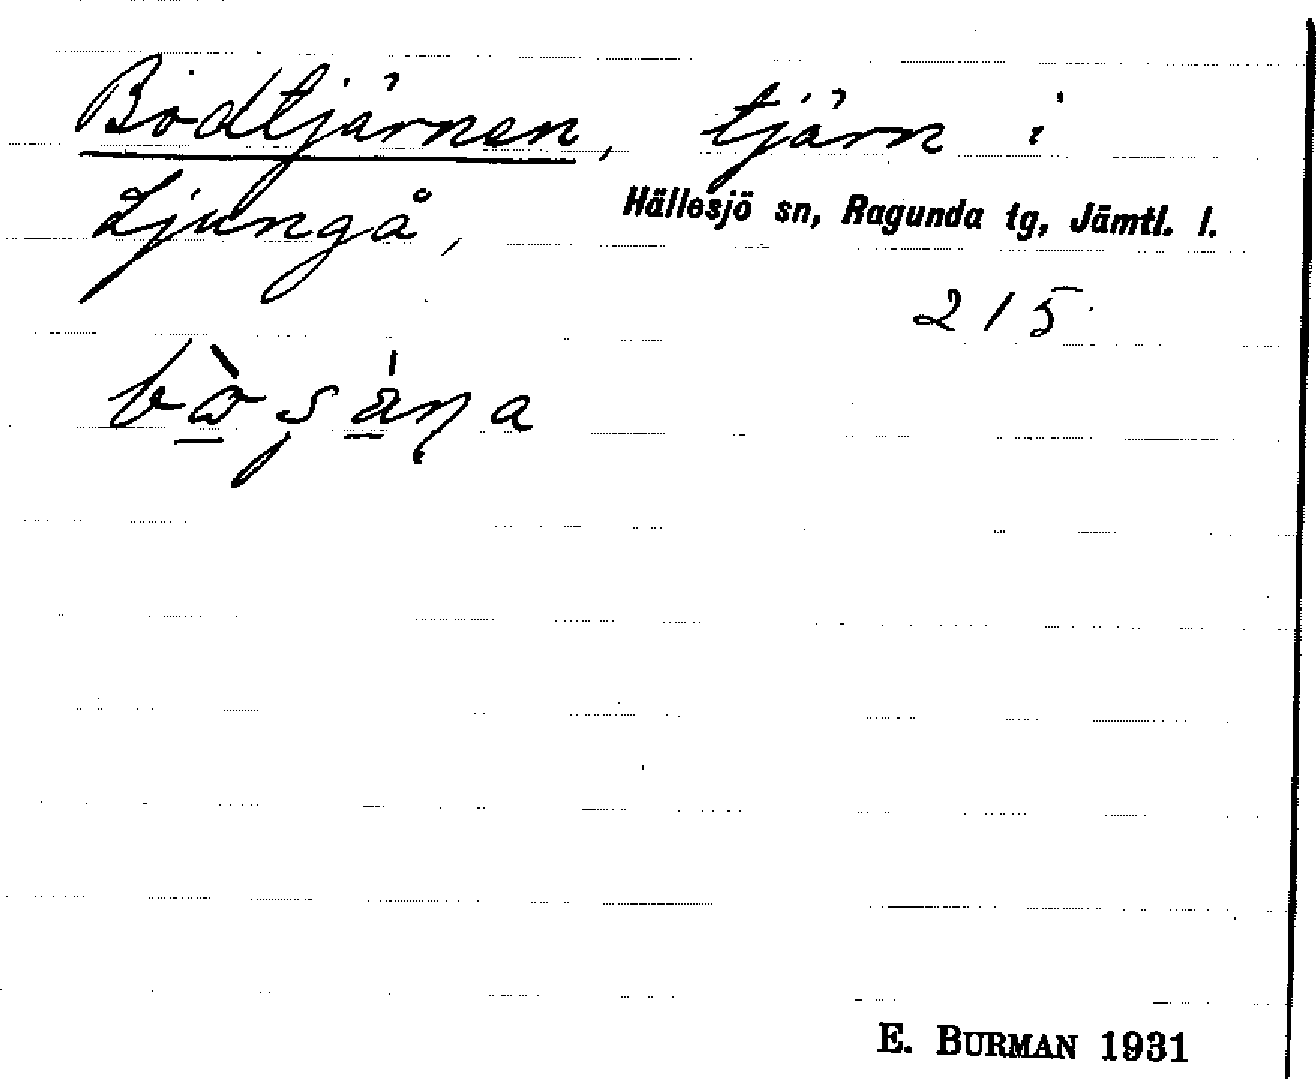 Bodtjärnen, tjärn i
Ljungå, Hällesjö sn, Ragunda tg, Jämtl. l.
215
E. BURMAN 1931